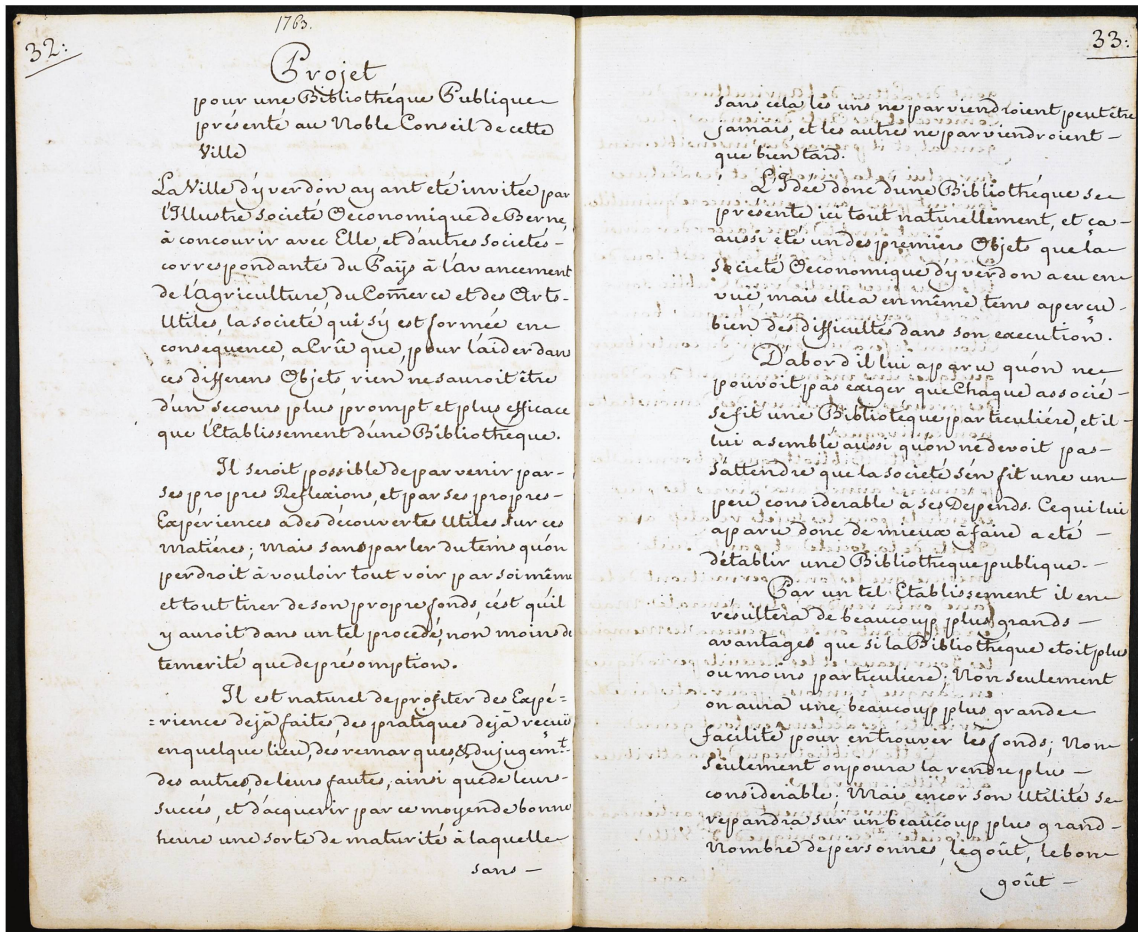 1763.
32:
Projet
pour une Bibliothéque Publique
présenté au Noble Conseil de cette
Ville
La Ville d'yverdon ayant eté invitée par
l'Illustre Societé Oeconomique de Berne,
à concourir avec Elle, et d'autres Societés
correspondantes du Païs à l'avancement
de l'agriculture, du Com̄erce et des Arts
Utiles, la societé, qui s'y est formée en
consequence, a Crû que, pour l'aider dans
ces differens Objets, rien ne sauroit être
d'un secours plus prompt et plus efficace
que l'Etablissement d'une Bibliothèque.
Il seroit possible de parvenir par
ses propres Reflexions, et par ses propres
Expériences à des découvertes Utiles sur ces
matiéres; mais sans parler du tems qu'on
perdroit à vouloir tout voir par soi même
et tout tirer de son propre fonds, c'est qu'il
y auroit dans un tel procedé, non moins de
temerité que de présomption.
Il est naturel de profiter des Expé=
=riences dejà faites des pratiques dejà recuës
en quelque lieu, des remarques, & du jugemt.
des autres, de leurs fautes, ainsi que de leurs
succés, et d'acquerir par ce moyen de bonne
heure une sorte de maturité à laquelle
sans –
33:
sans cela les uns ne parviendroient peut être
jamais, et les autres ne parviendroient –
que bien tard.
L'Idée donc d'une Bibliothéque se
présente ici tout naturellement, et ç'a
aussi eté un des premiers Objet que la
Societé Oeconomique d'yverdon a eu en
vuë, mais elle a en même tems apercu
bien des difficultés dans son execution.
D'abord il lui a paru qu'on ne
pouvoit pas exiger que Chaque associé –
se fit une Bibliotéque particuliére, et il
lui a semblé aussi qu'on ne devoit pas
s'attendre que la societé s'en fit une un
peu considerable à ses Depends. Ce qui lui
a paru donc de mieux à faire a eté –
d'établir une Bibliothèque publique. –
Par un tel Etablissement il en
résultera de beaucoup plus grands –
avantages que si la Bibliothéque etoit plus
ou moins particuliere; Non seulement
on aura une beaucoup plus grande
facilité pour en trouver les fonds; Non
seulement on poura la rendre plus –
considerable; Mais encor son Utilité se
repandra sur un beaucoup plus grand
Nombre de personnes, le goût, le bon
goût –